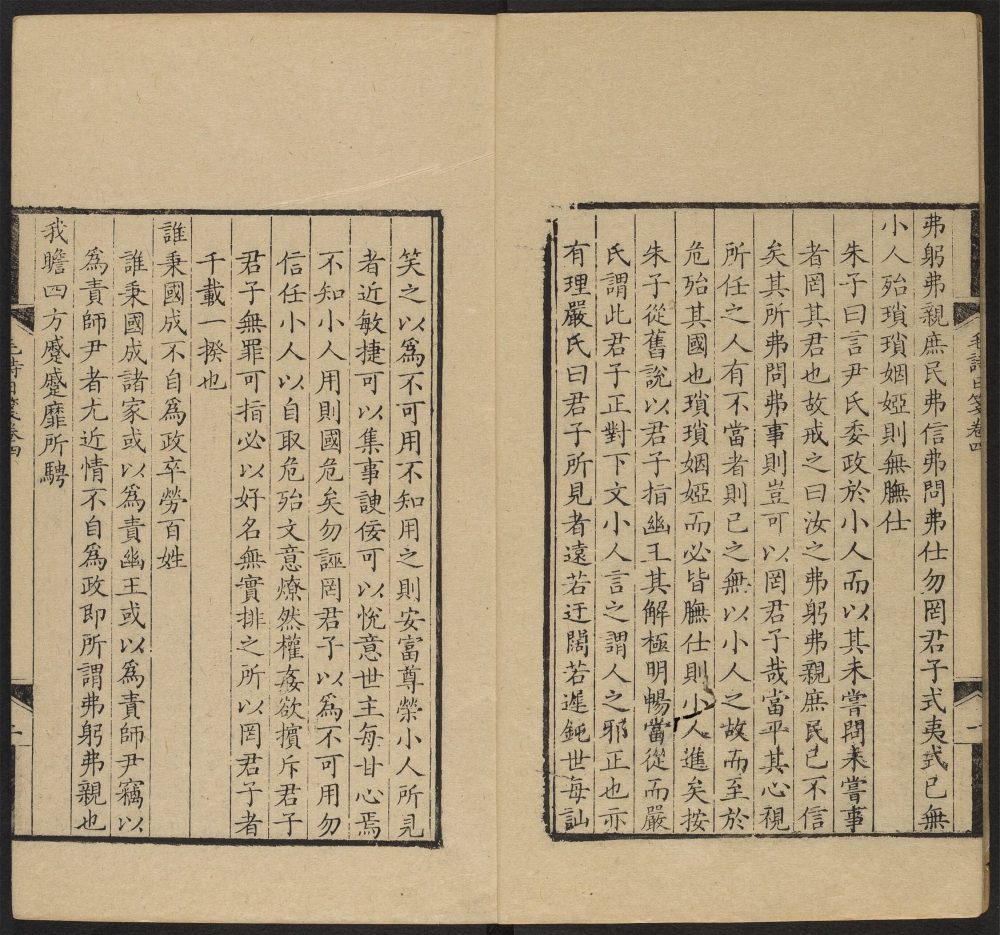 弗躬弗親庶民弗信弗問弗仕勿罔君子式夷式已無
小人殆瑣瑣姻婭則無膴仕
朱子曰言尹氏委政於小人而以其未嘗問未嘗事
者罔其君也故戒之曰汝之弗躬弗親庶民已不信
矣其所弗問弗事則豈可以罔君子哉當平其心視
所任之人有不當者則已之無以小人之故而至於
危殆其國也瑣瑣姻婭而必皆膴仕則小人進矣按
朱子從舊說以君子指幽王其解極明暢當從而嚴
氏謂此君子正對下文小人言之謂人之邪正也亦
有理嚴氏曰君子所見者遠若迂闊若遲鈍世每訕
毛詩日箋卷四
一
笑之以爲不可用不知用之則安富尊榮小人所見
者近敏捷可以集事諛佞可以悅意世主每甘心焉
不知小人用則國危矣勿誣罔君子以爲不可用勿
信任小人以自取危殆文意燎然權姦欲擯斥君子
君子無罪可指必以好名無實排之所以罔君子者
千載一揆也
誰秉國成不自爲政卒勞百姓
誰秉國成諸家或以爲責幽王或以爲責師尹竊以
爲責師尹者尤近情不自爲政即所謂弗躬弗親也
我瞻四方蹙蹙靡所騁
毛詩日箋卷四